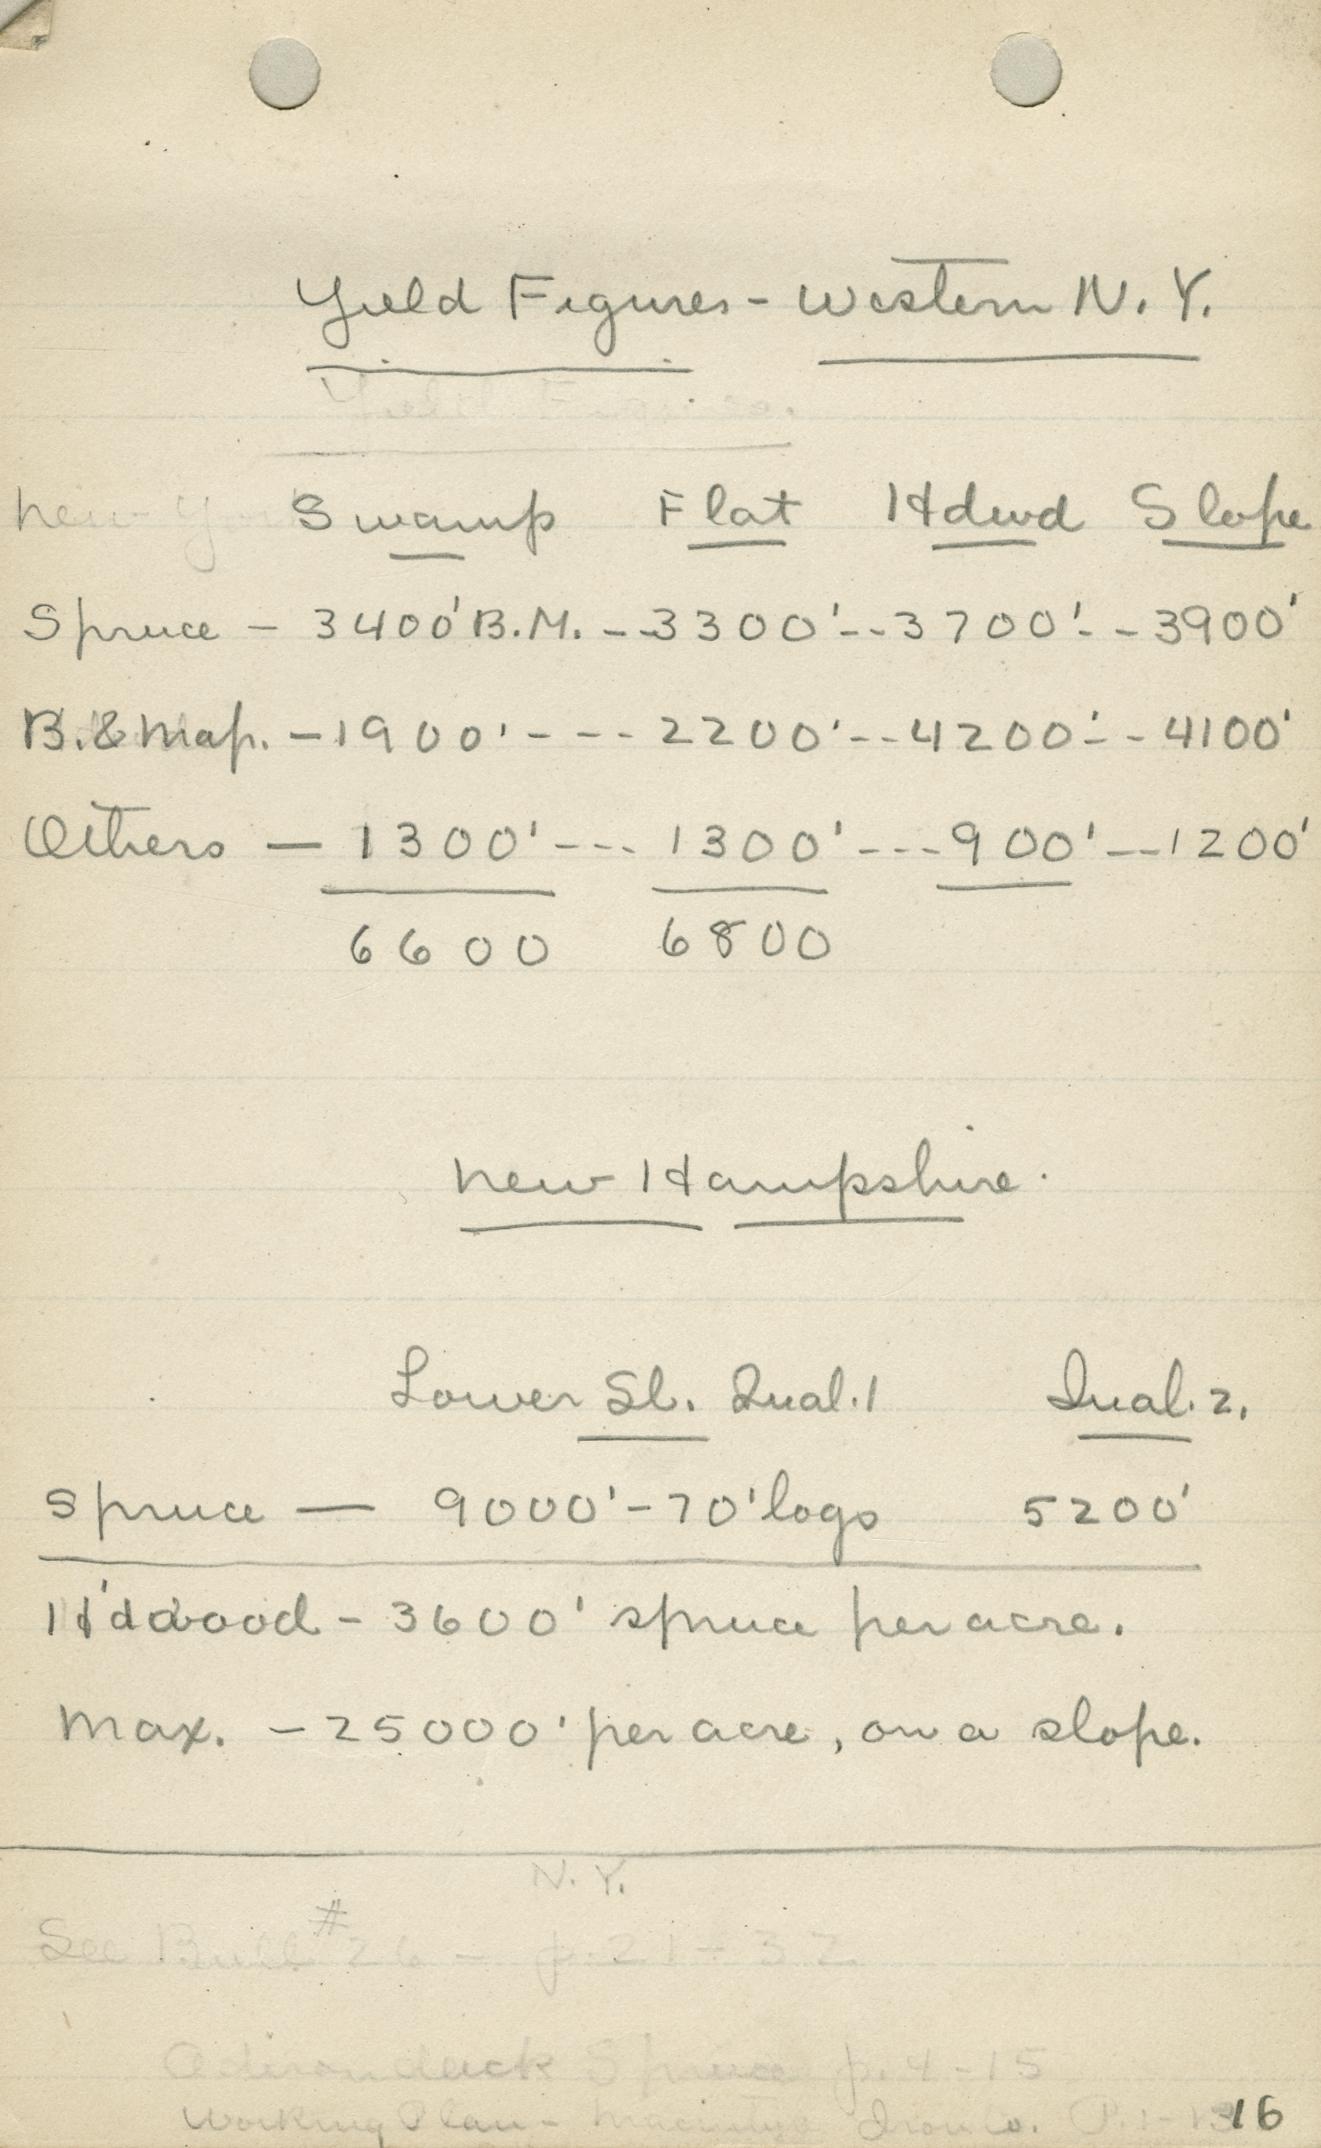 Yield Figures - Western N.Y.
Yield Figures.
New Y Swamp Flat Hdwd Slope
Spruce - 3400' B.M. -- 3300' -- 3700' -- 3900'
B. & Map. - 1900' --- 2200' -- 4200' -- 4100'
Others - 1300' --- 1300' --- 900' -- 1200'
6600 6800
New Hampshire.
Lower Sl. Qual. 1 Qual. 2.
Spruce - 9000' - 70' logs 5200'
H'dwood - 3600' spruce per acre.
Max. - 25000' per acre, on a slope.
N.Y.
See Bull # 26 - p. 21 - 32
Adirondack Spruce p. 4 - 15
Working Plan - Iron Co.
16